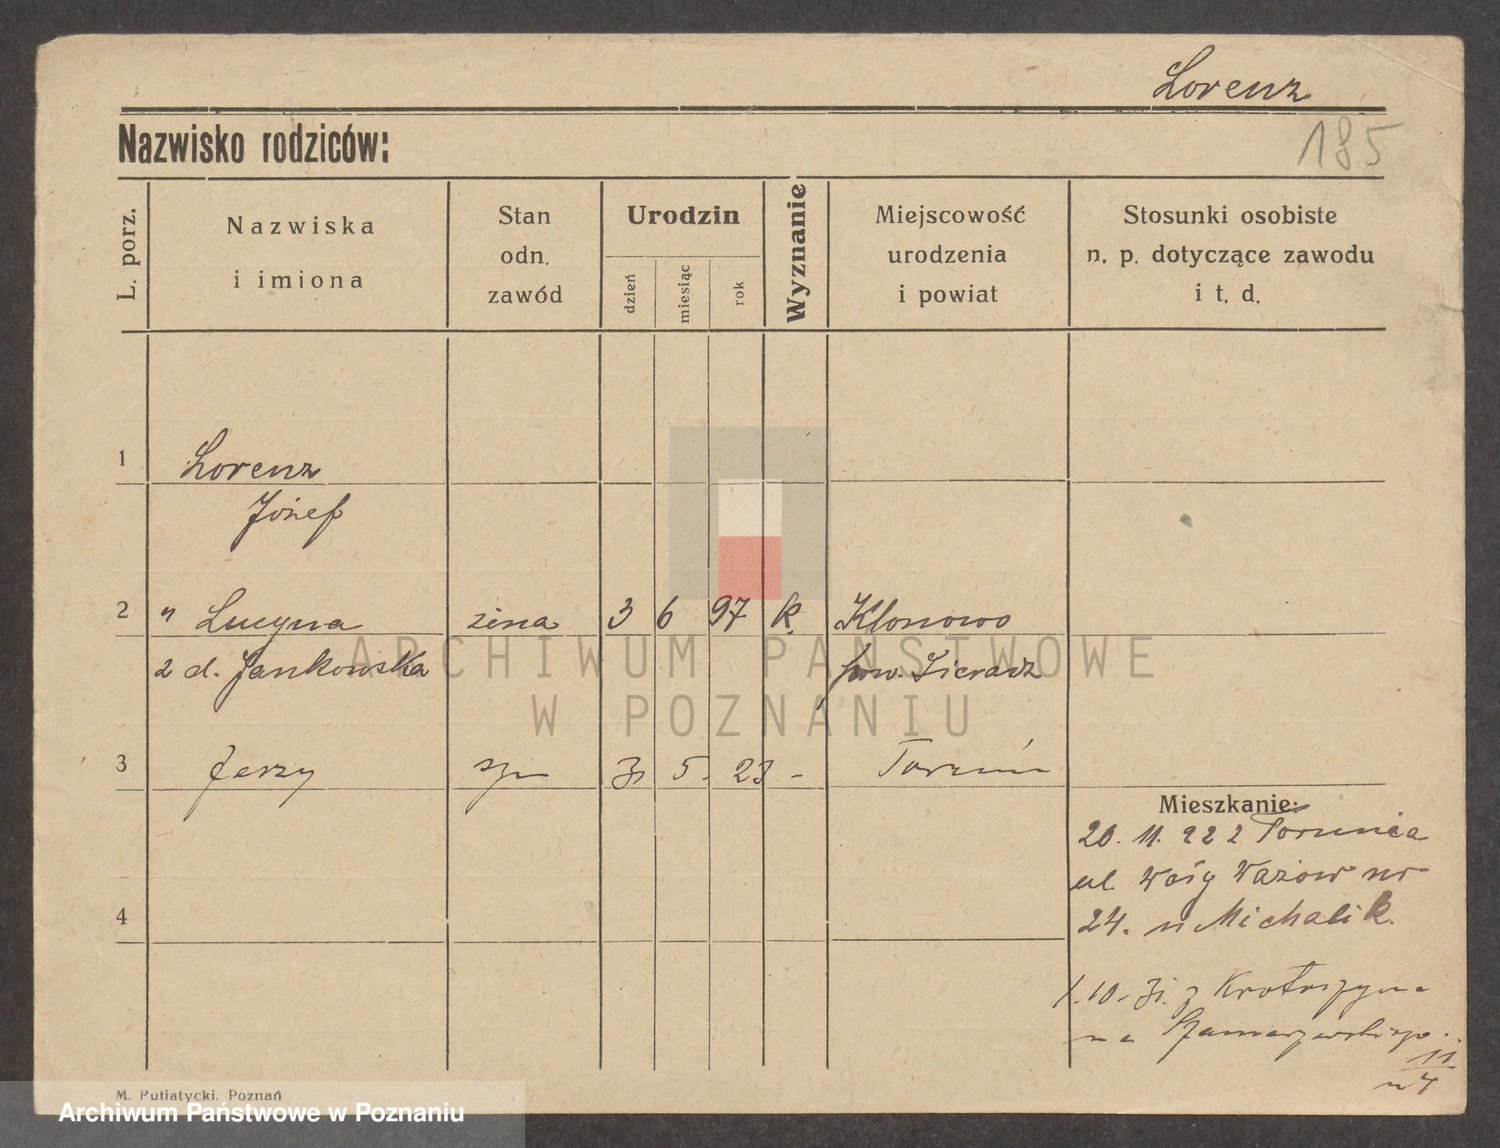 Lorenz
185
Nazwisko rodziców:
L. porz.
Nazwiska
i imiona
Stan
odn.
zawód
Urodzin
dzień
miesiąc
rok
Wyznanie
Miejscowość
urodzenia
i powiat
Stosunki osobiste
n. p. dotyczące zawodu
i t. d.
1 Lorenz
Józef
2 " Lucyna żona 3 6 97 k. Klonowo
z d. Jankowska pow. Sieradz
3 Jerzy syn 31 5. 23 - Toruń
Mieszkanie:
20. 11. 922 Torunia
ul Wały Wazow nr
24. u Michalik.
4
1.10.31. z Krotoszyna
na Szamarzewskiego.
11
M. Putiatycki, Poznań
ARCHIWUM PAŃSTWOWE
W POZNANIU
Archiwum Państwowe w Poznaniu